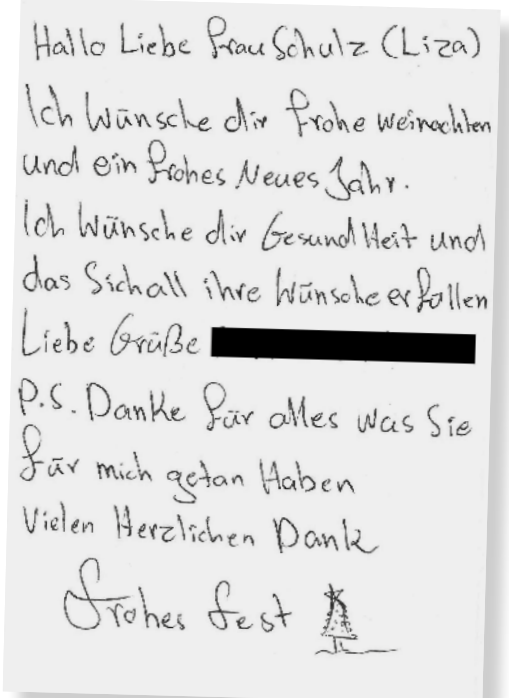 Hallo Liebe Frau Schulz (Liza)
Ich Wünsche dir frohe weinachten
und ein frohes Neues Jahr.
Ich Wünsche dir Gesundheit und
das Sichall ihre Wünsche erfollen
Liebe Grüße
P.S. Danke für alles was Sie
für mich getan Haben
Vielen Herzlichen Dank
Frohes Fest